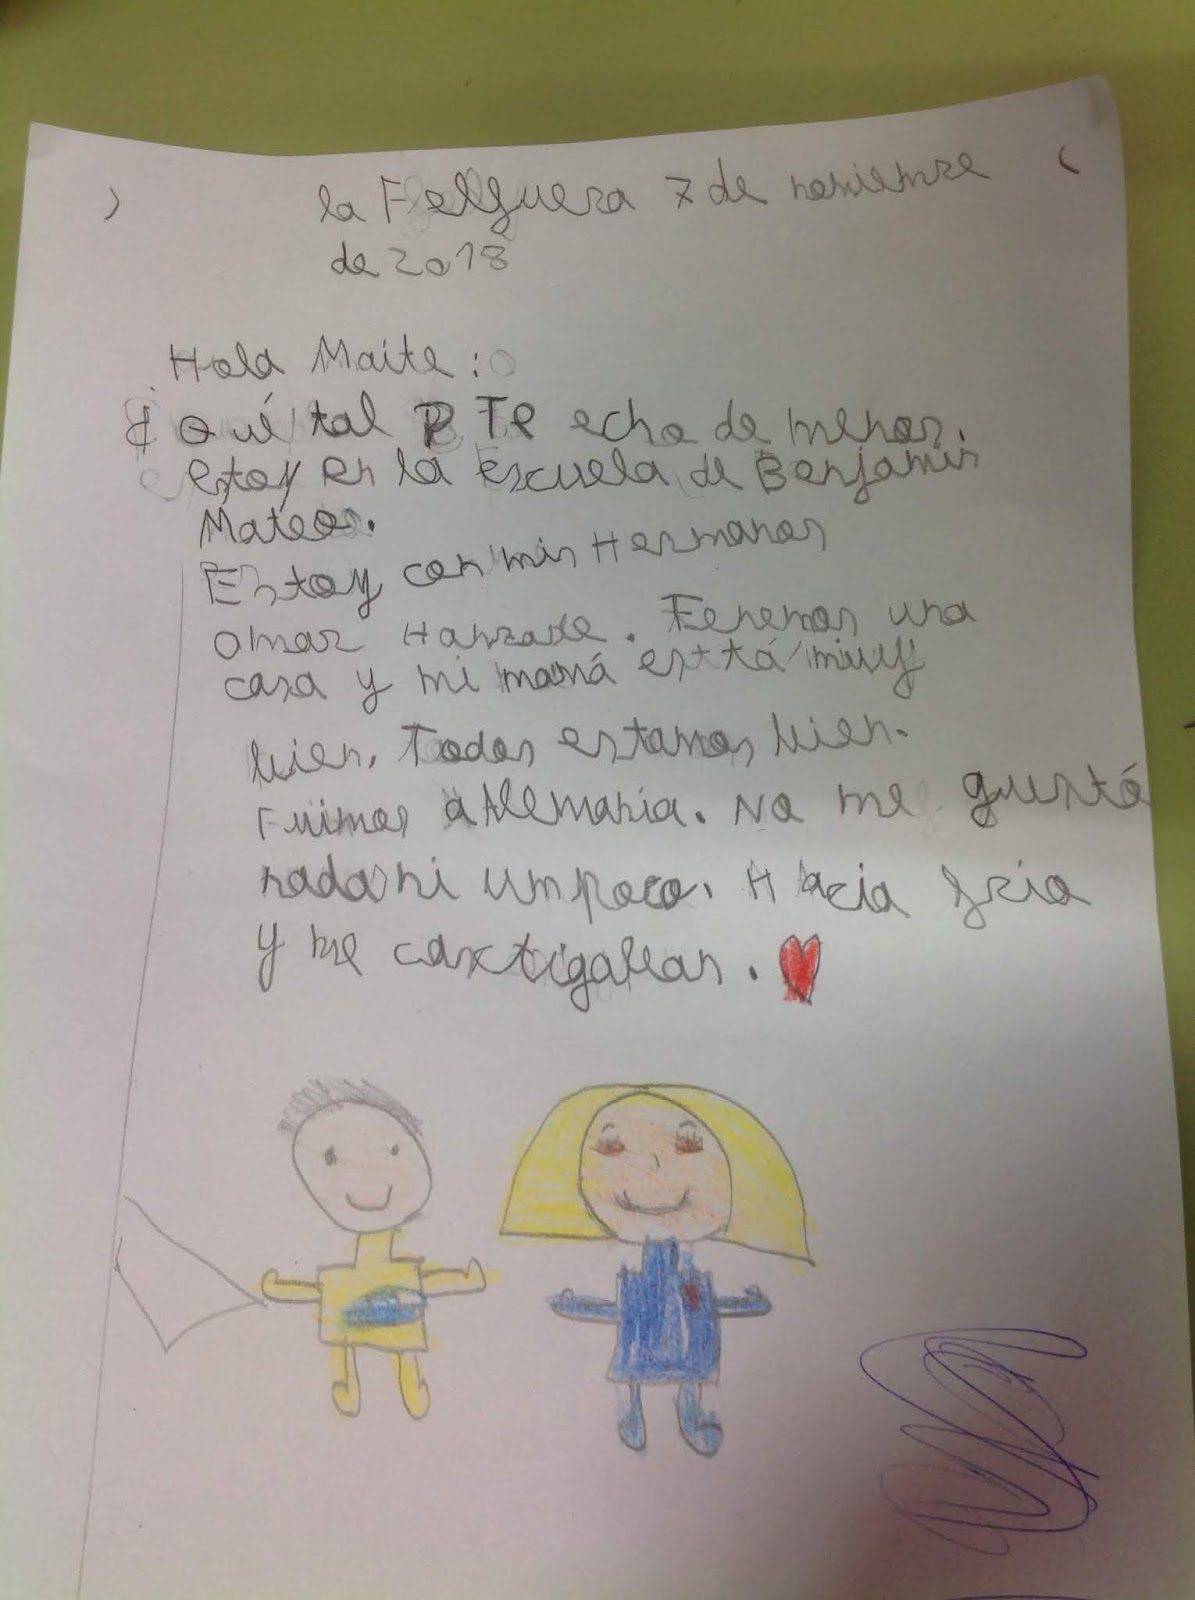 la Felguera 7 de noviembre
de 2018
Hola Maite:
¿Qué tal? Te echo de menos.
estoy en la escuela de Benjamin
Mateos.
Estoy con mis Hermanos
omar Tenemos una
casa y mi mamá esttá muy
bien. Todos estamos bien.
Fuimos a Alemania. No me gustó
nada ni um poco. Hacia frio
y me castigaban.